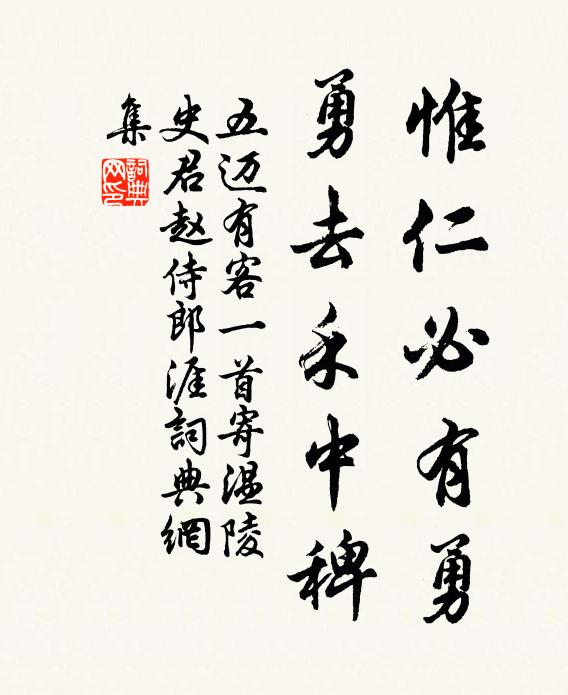 惟仁必有勇
勇去禾中稗
五迈有客一首寄温陵
史君赵侍郎涯詞典網
集
詞典网印